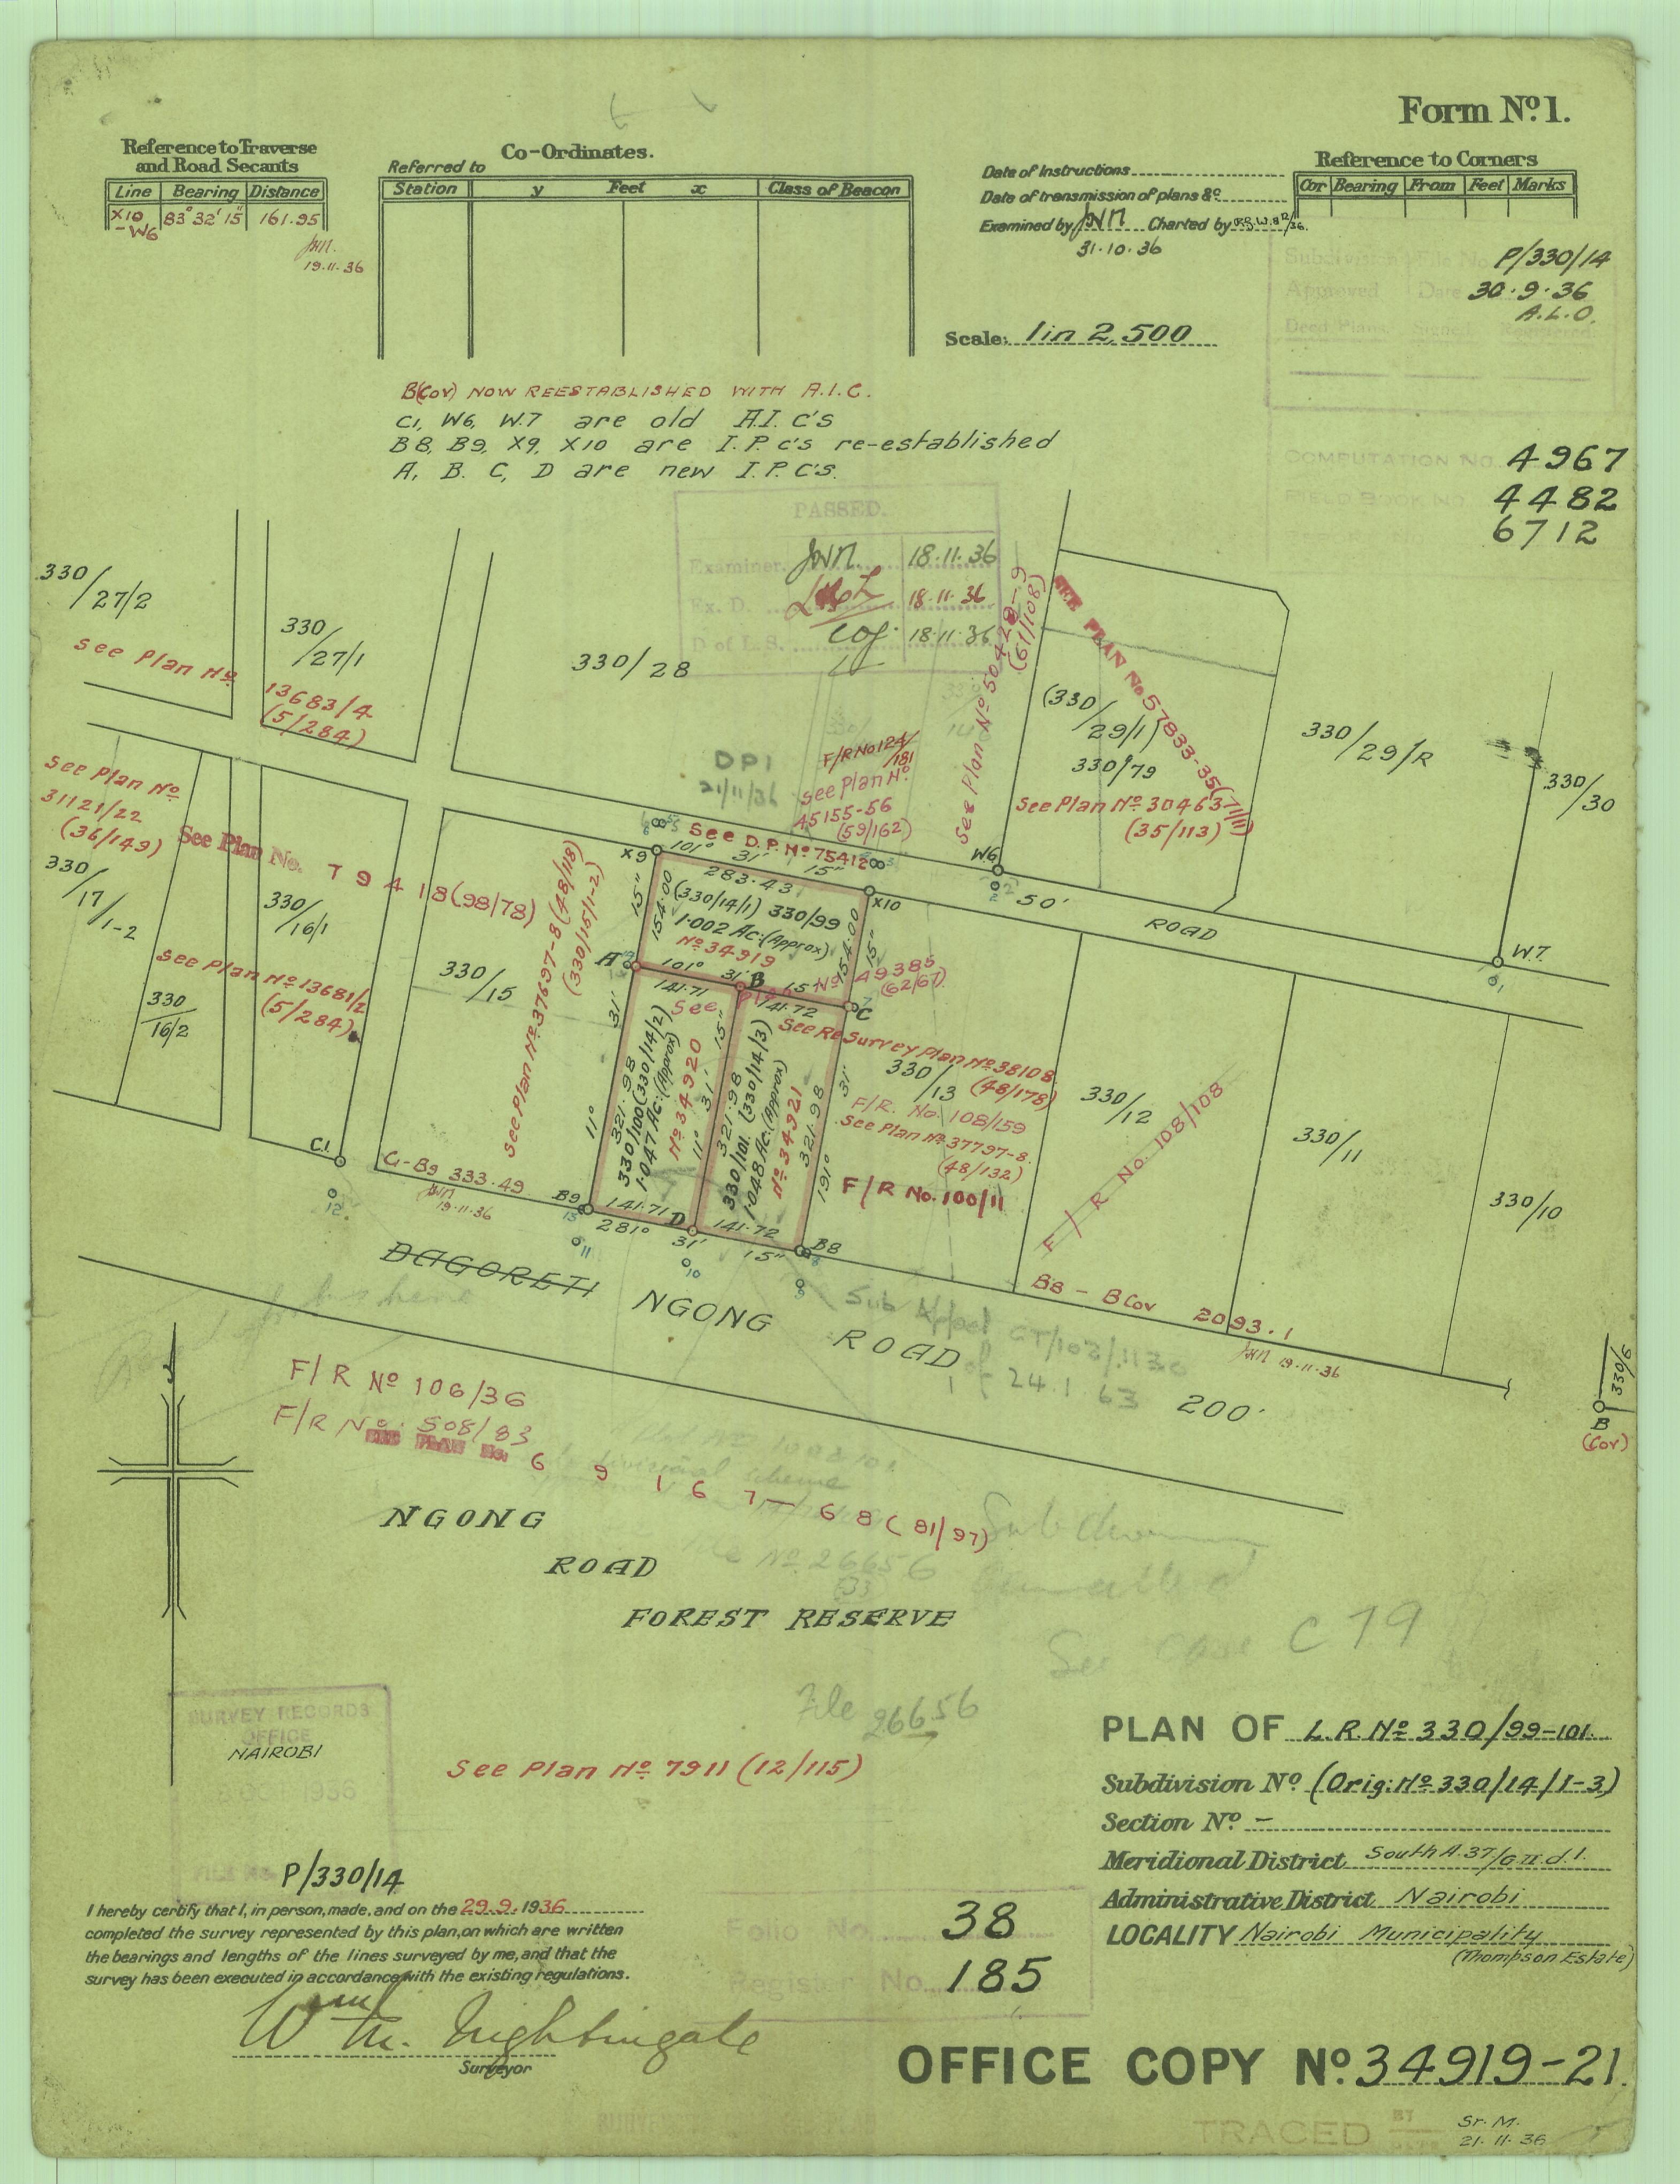 Form Nº1.
Reference to Traverse
and Road Secants
Line Bearing Distance
X10 - W6 83° 32' 15" 161.95
JWN.
19.11.36
Co-Ordinates.
Referred to
Station y Feet x Class of Beacon
Date of Instructions
Date of transmission of plans &c
Examined by JWN Charted by
31.10.36
Scale: 1 in 2,500
Reference to Corners
Cor Bearing From Feet Marks
Subdivision File No. P/330/14
Approved Date 30.9.36
A.L.O.
Deed Plans Signed
COMPUTATION No. 4967
FIELD BOOK No. 4482
6712
B(Cov) NOW REESTABLISHED WITH A.I.C.
C1, W6, W.7 are old A.I.C's
B8, B9, X9, X10 are I.P.C's re-established
A, B. C, D are new I.P.C'S.
PASSED.
Examiner. JWN. 18.11.36
Ex. D. 18.11.36
D of L.S. 18.11.36
330/27/2
See Plan Nº
330/27/1
13683/4
(5/284)
330/28
DPI
21/11/36
F/R No 124/181
See Plan Nº
45155-56
(59/162)
See Plan Nº 50428-9
(61/108)
SEE PLAN No 57833-35(71/11)
(330/29/1)
330/79
See Plan Nº 30463
(35/113)
330/29/R
330/30
See Plan Nº
31121/22
(36/149)
See Plan No. 79418(98/78)
330/17/1-2
330/16/1
See Plan Nº 13681/2
(5/284)
330/16/2
330/15
See Plan Nº 37697-8 (48/118)
(330/15/1-2)
See D.P. Nº 75412
X9 101° 31' 15"
283.43
X10
W6
50'
ROAD
W.7.
15"
154.00
(330/14/1) 330/99
1.002 Ac:(Approx)
Nº 34919
154.00
15"
A 101° 31' B 15" C
141.71
141.72
See Plan Nº 49385
(62/67)
See ReSurvey Plan Nº 38108
(48/178)
31'
11°
321.98
330/100 (330/14/2)
1.047 Ac:(Approx)
Nº 34920
15"
31'
11°
321.98
330/101. (330/14/3)
1.048 Ac:(Approx)
Nº 34921
321.98
31'
191°
330/13
F/R. No. 108/159
See Plan Nº 37797-8.
(48/132)
F/R No. 100/11
330/12
F/R No. 108/108
330/11
330/10
C1.
C1-B9 333.49
JWN
19.11.36
B9 141.71 D 141.72 B8
281° 31' 15"
B8 - B Cov 2093.1
JWN 19.11.36
330/6
B
(Cov)
DAGORETI NGONG ROAD
200'
Sub Appvl CT/103/1130
of 24.1.63
F/R Nº 106/36
F/R Nº 508/83
SEE PLAN No. 69167-68 (81/97)
NGONG
ROAD
FOREST RESERVE
File Nº 26656
See C79
File 26656
See Plan Nº 7911 (12/115)
SURVEY RECORDS
OFFICE
NAIROBI
1936
P/330/14
I hereby certify that I, in person, made, and on the 29.9.1936
completed the survey represented by this plan, on which are written
the bearings and lengths of the lines surveyed by me, and that the
survey has been executed in accordance with the existing regulations.
Wm. Nightingale
Surveyor
Folio No. 38
Register No. 185
PLAN OF L.R. Nº 330/99-101.
Subdivision Nº (Orig: Nº 330/14/1-3)
Section Nº -
Meridional District South A.37/G II. d.1.
Administrative District Nairobi
LOCALITY Nairobi Municipality
(Thompson Estate)
OFFICE COPY Nº 34919-21.
TRACED BY Sr. M.
DATE 21.11.36